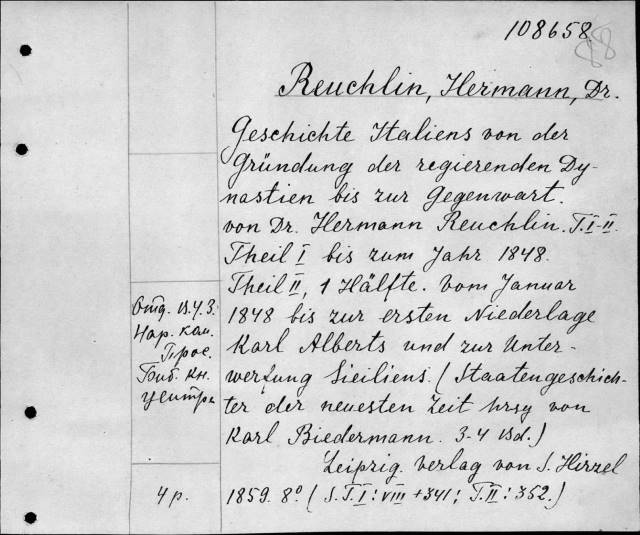 108658
88
Reuchlin, Hermann, Dr.
Geschichte Italiens von der
Gründung der regierenden Dy-
nastien bis zur Gegenwart.
von Dr. Hermann Reuchlin. T.I-II.
Theil I bis zum Jahr 1848.
Theil II, 1 Hälfte. vom Januar
1848 bis zur ersten Niederlage
Karl Alberts und zur Unter-
werfung Siciliens. (Staatengeschich-
ter der neuesten Zeit hrsg von
Karl Biedermann. 3-4 Bd.)
Leipzig. Verlag von S. Hirzel
1859. 8° (S. T.I: VIII + 341; T.II: 352.)
Нар. ком.
Прос.
Биб. кн.
центра
4 р.